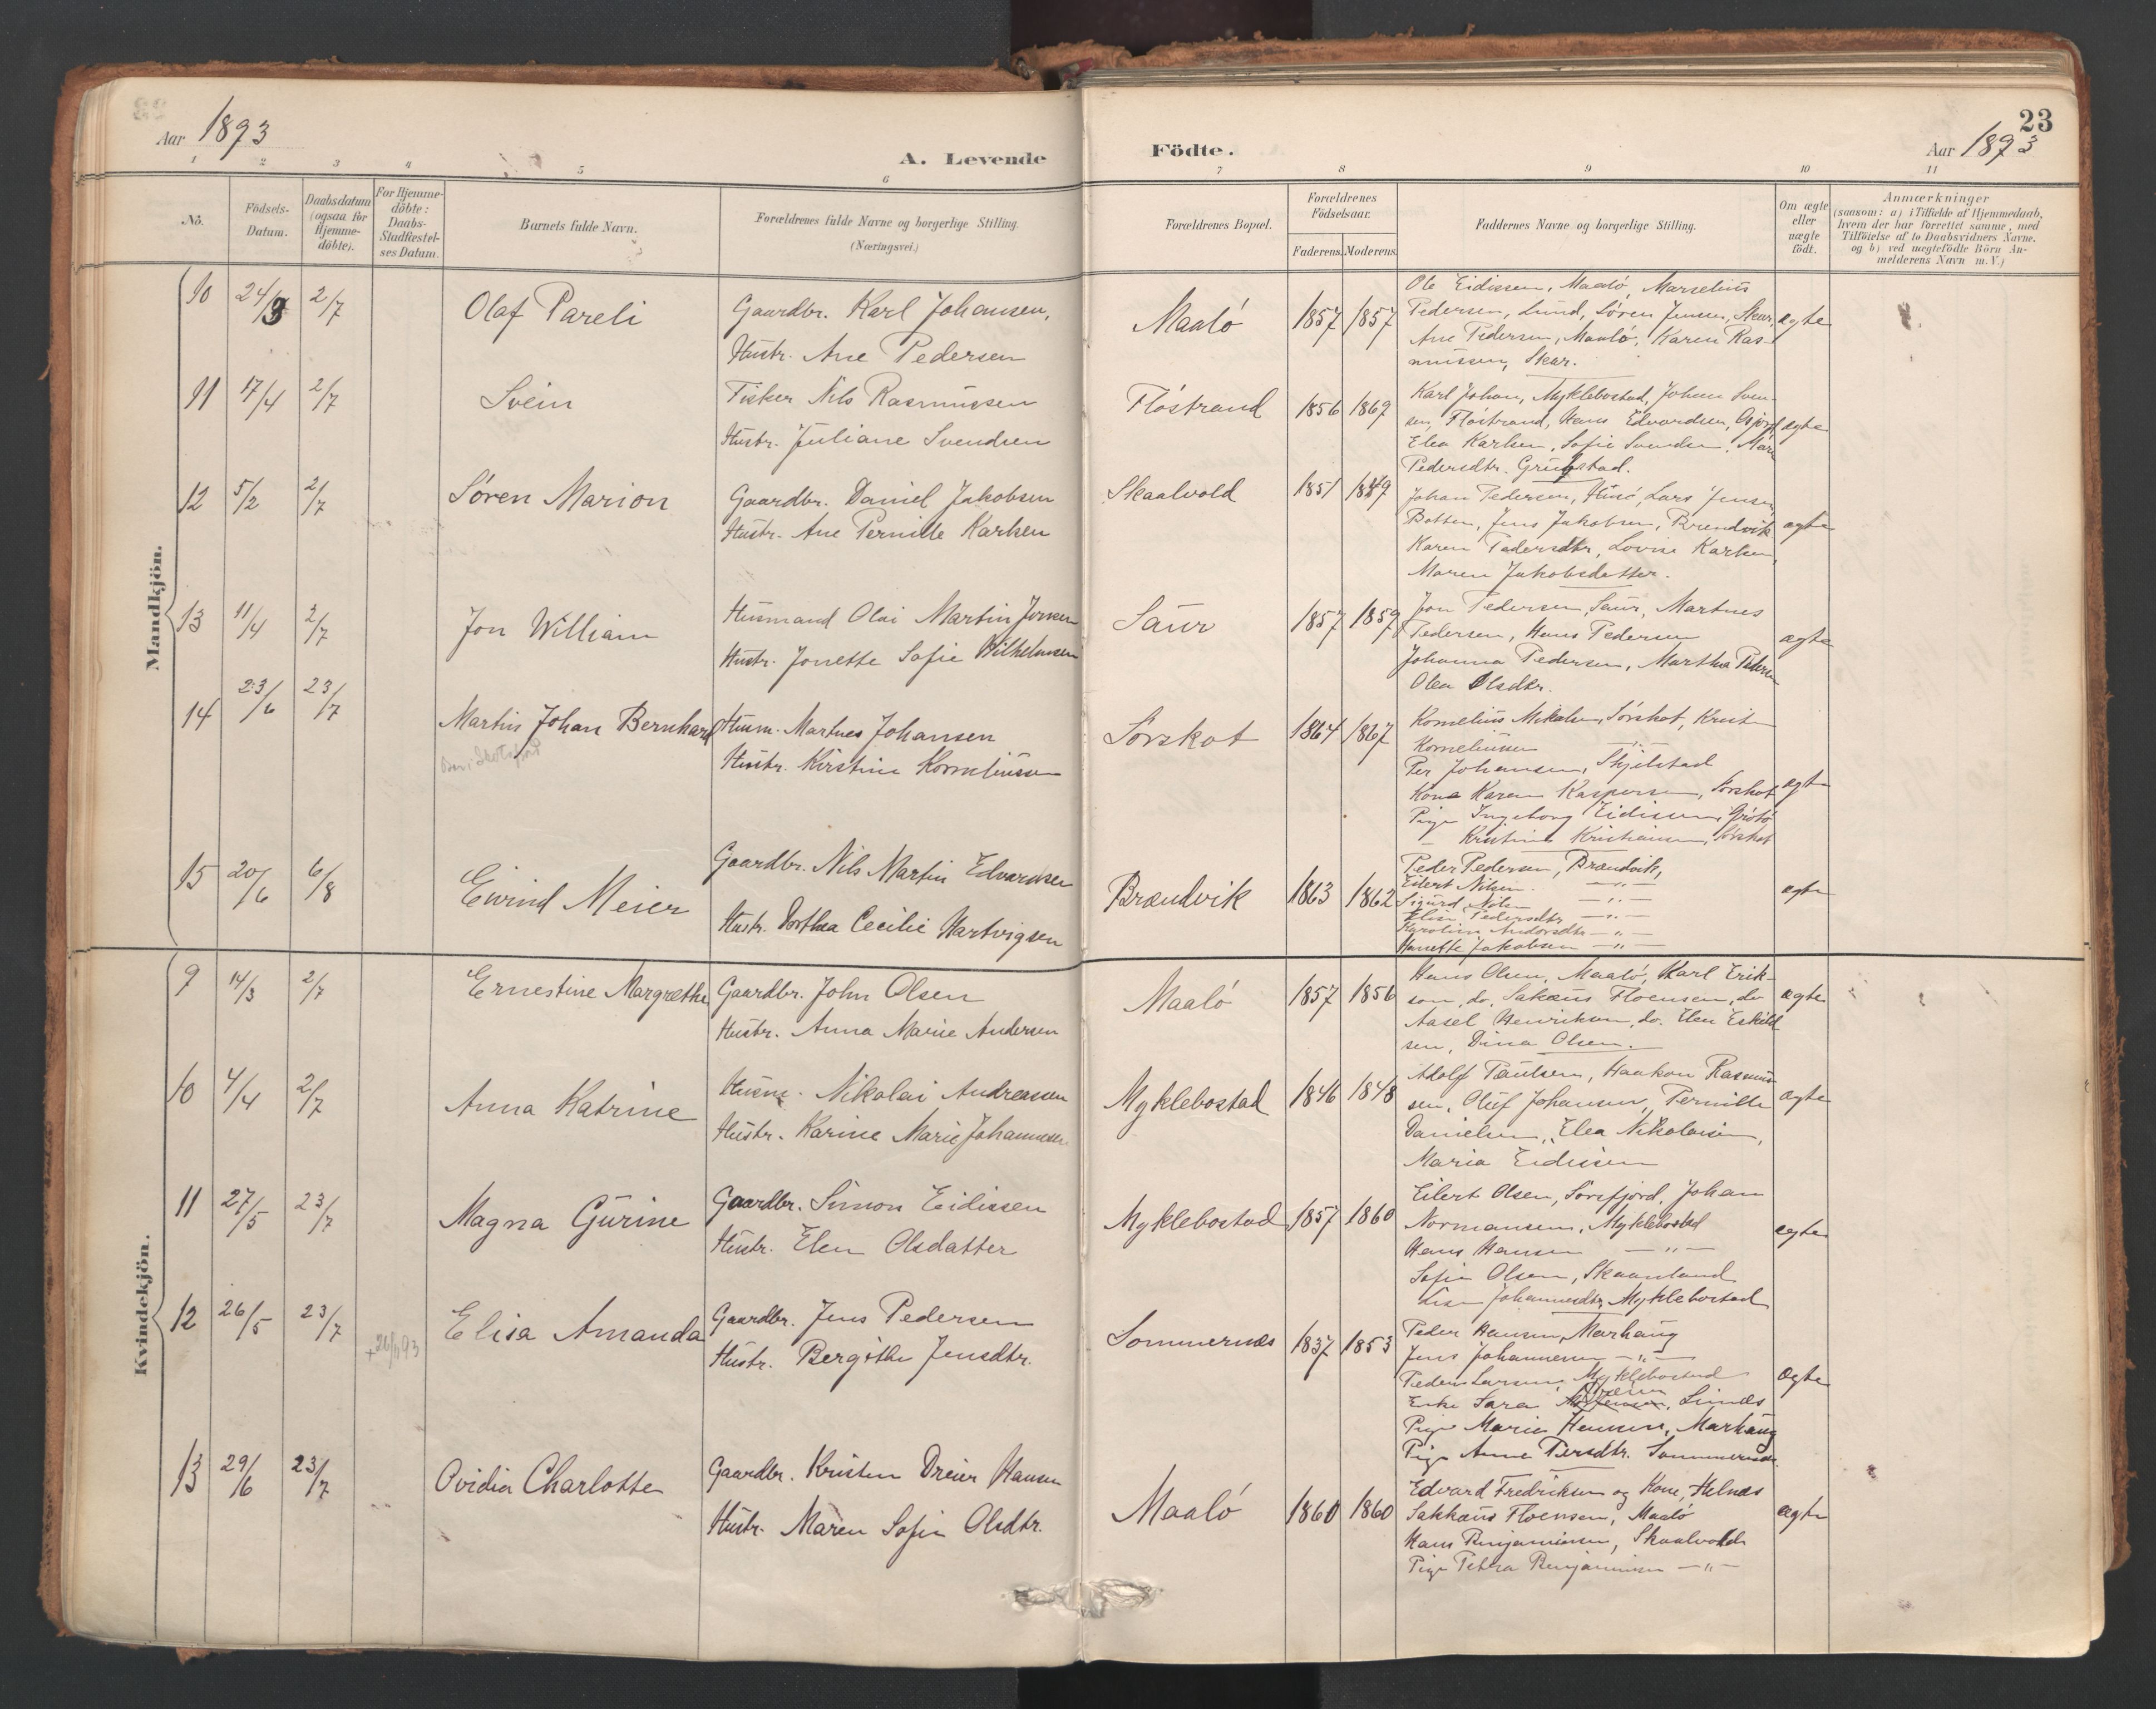 Aar 1893
A. Levende
Födte.
23
Aar 1893
1 2 3 4 5 6 7 8 9 10 11
No.
Födsels-
Datum.
Daabsdatum
(ogsaa for
Hjemme-
döbte).
For Hjemme-
döbte:
Daabs-
Stadfæstel-
ses Datum.
Barnets fulde Navn.
Forældrenes fulde Navne og borgerlige Stilling.
(Næringsvei.)
Forældrenes Bopæl.
Forældrenes
Födselsaar.
Faderens. Moderens.
Faddernes Navne og borgerlige Stilling.
Om ægte
eller
uægte
födt.
Anmærkninger
(saasom: a) i Tilfælde af Hjemmedaab,
hvem der har forrettet samme, med
Tilföielse af to Daabsvidners Navne,
og b) ved uægtefödte Börn An-
melderens Navn m. V.)
Mandkjön.
10 24/3 2/7 Olaf Pareli
Gaardbr. Karl Johansen,
Hustr. Ane Pedersen
Maalö 1857 1857
Ole Eidissen, Maalö, Marselius
Pedersen, Lund, Sören Jensen, Skar,
Ane Pedersen, Maalö, Karen Ras-
mussen, Skar.
ægte
11 17/4 2/7 Svein
Fisker Nils Rasmussen
Hustr. Juliane Svendsen
Flöstrand 1856 1867
Karl Johan, Myklebostad, Johan Sven-
sen, Flöstrand, Hans Edvardsen,
Elea Karlsen, Sofie Svendsen,
Pedersdtr.
ægte
12 5/2 2/7 Sören Marion
Gaardbr. Daniel Jakobsen
Hustr. Ane Pernille Karlsen
Skaalvold 1851 1849
Johan Pedersen, Lars Jensen,
Botten, Jens Jakobsen, Brændvik
Karen Pedersdtr, Lovise Karlsen,
Maren Jakobsdatter.
ægte
13 11/4 2/7 Jon William
Husmand Olai Martin Jonsen
Hustr. Jonette Sofie Wilhelmsen
Saur 1857 1859
Jon Pedersen, Saur, Martnes
Pedersen, Hans Pedersen
Johanna Pedersen, Martha Pedersen
Olea Olsdtr.
ægte
14 23/6 23/7 Martin Johan Bernhard
Husm. Martnes Johansen
Hustr. Kirstine Korneliussen
Sörskot 1864 1867
Kornelius Mikalsen, Sörskot, Krist
Korneliussen —„—
Per Johansen, Skjelstad
Kone Karen Kaspersen, Sörskot
Pige Ingeborg Eidissen, Grötö
— Kristine Kristiansen, Sörskot
ægte
15 20/6 6/8 Eivind Meier
Gaardbr. Nils Martin Edvardsen
Hustr. Dorthea Cecilie Hartvigsen
Brændvik 1863 1862
Peder Pedersen, Brændvik,
Eilert Nilsen. —„—
Sigurd Nilsen —„—
Elise Pedersdtr —„—
Karoline Andersdtr —„—
Hanette Jakobsen —„—
ægte
Kvindekjön.
9 14/3 2/7 Ernestine Margrethe
Gaardbr. John Olsen
Hustr. Anna Marie Andersen
Maalö 1857 1856
Hans Olsen, Maalö, Karl Erik-
sen, do, Sakæus Floensen, do
Aasel Henriksen, do. Elen Eskild
sen, Dina Olsen.
ægte
10 4/4 2/7 Anna Katrine
Husm. Nikolai Andreassen
Hustr. Karine Marie Johannesen
Myklebostad 1846 1848
Adolf Paulsen, Haakon Rasmus-
sen, Oluf Johansen, Pernille
Danielsen, Elea Nikolaisen,
Maria Eidissen
ægte
11 27/5 23/7 Magna Gurine
Gaardbr. Simon Eidissen
Hustr. Elen Olsdatter
Myklebostad 1857 1860
Eilert Olsen, Sörfjord, Johan
Normansen, Myklebostad
Hans Hansen —„—
Sofie Olsen, Skaanland
Johannesdtr, Myklebostad
ægte
12 26/5 23/7 Elisa Amanda
Gaardbr. Jens Pedersen
Hustr. Bergithe Jensdtr.
Sommernæs 1837 1853
Peder Hansen, Marhaug
Jens Johannesen —„—
Peder Larsen, Myklebostad
Enke Sara Limdes
Pige Marie Hansen, Marhaug
Pige Anne Persdtr. Sommernæs.
ægte
13 29/6 23/7 Ovidia Charlotte
Gaardbr. Kristen Dreier Hansen
Hustr. Maren Sofie Olsdtr.
Maalö 1860 1860
Edvard Fredriksen og Kone, Helnæs
Sakkæus Floensen, Maalö
Hans Benjaminsen, Skaalvold
Pige Petra Benjaminsen —„—
ægte